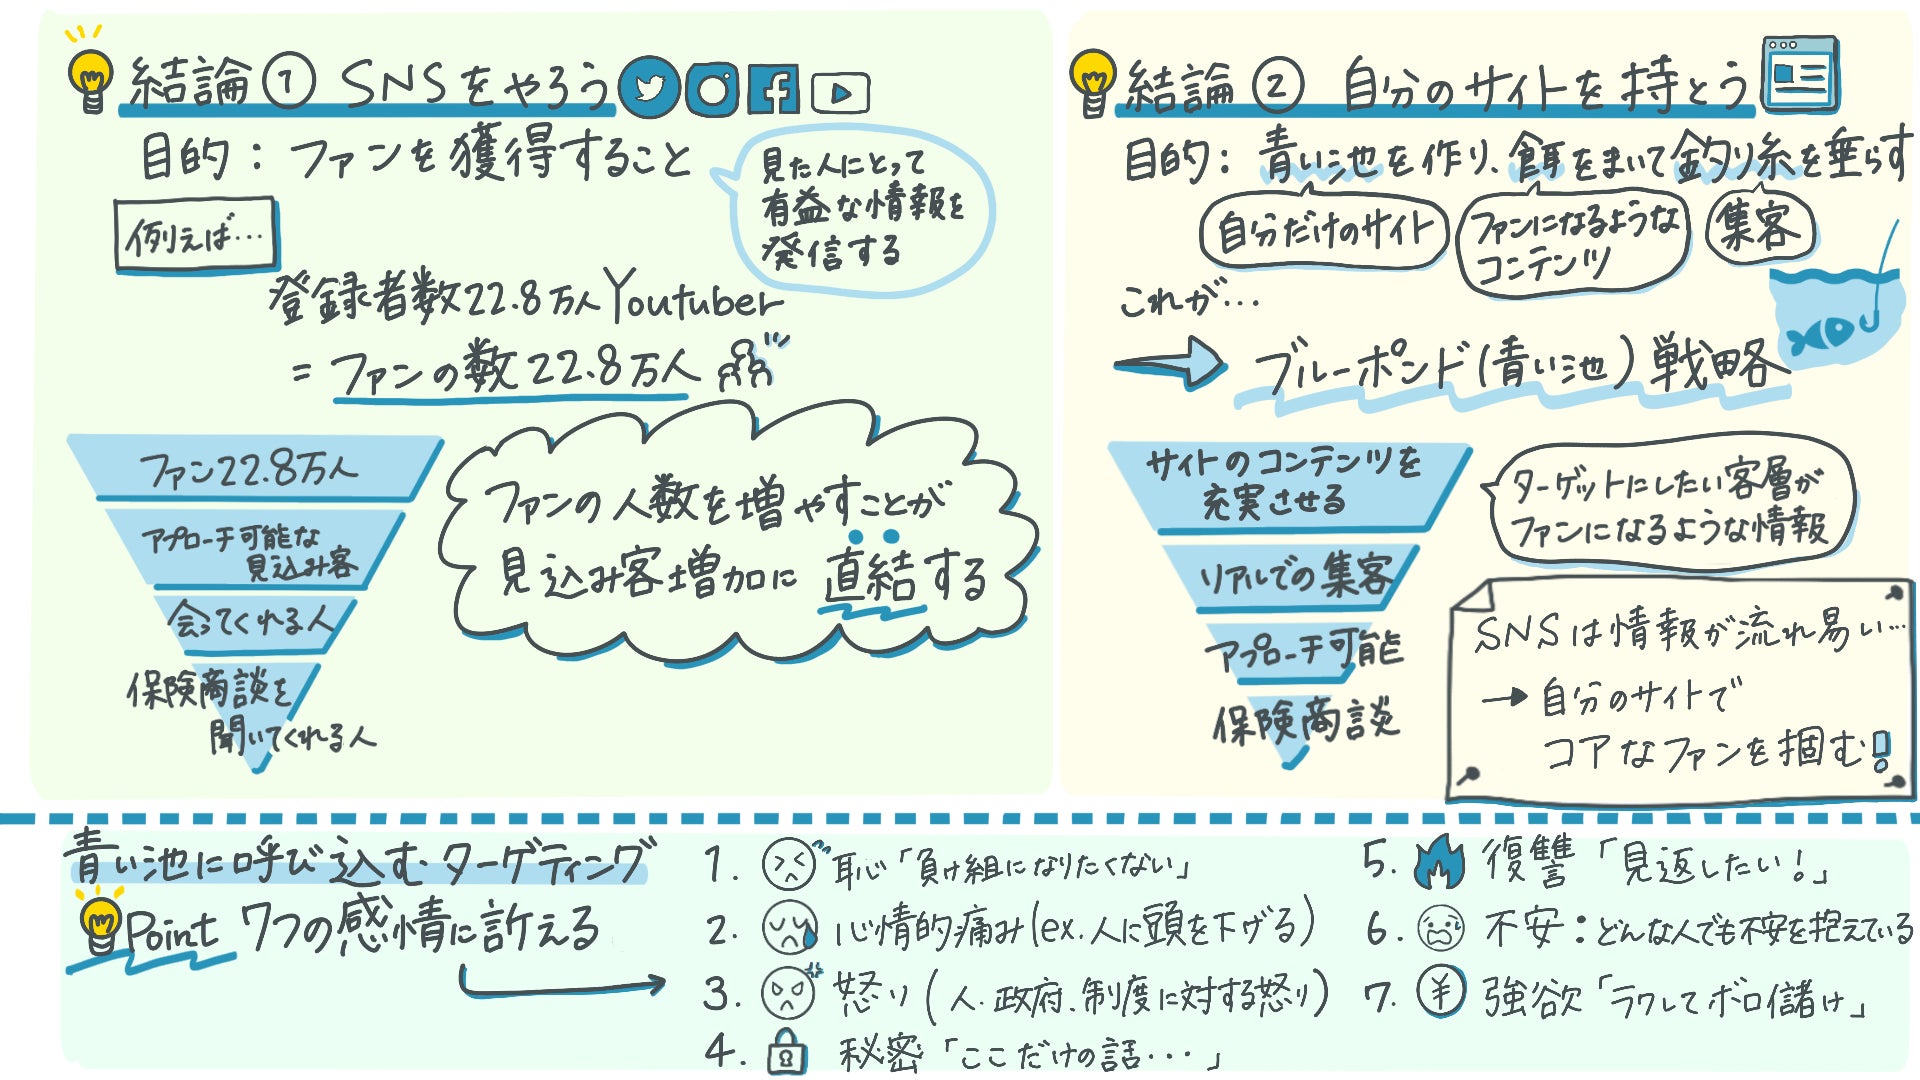 結論① SNSをやろう
目的：ファンを獲得すること
見た人にとって
有益な情報を
発信する
例えば…
登録者数22.8万人Youtuber
=ファンの数22.8万人
ファン22.8万人
アプローチ可能な
見込み客
会ってくれる人
保険商談を
聞いてくれる人
ファンの人数を増やすことが
見込客増加に直結する
結論② 自分のサイトを持とう
目的：青い池を作り、餌をまいて釣り糸を垂らす
自分だけのサイト
ファンになるような
コンテンツ
集客
これが…
ブルーポンド(青い池)戦略
サイトのコンテンツを
充実させる
リアルでの集客
アプローチ可能
保険商談
ターゲットにしたい客層が
ファンになるような情報
SNSは情報が流れ易い…
→自分のサイトで
コアなファンを掴む!
青い池に呼び込むターゲティング
Point 7つの感情に訴える
1. 恥「負け組になりたくない」
2. 心情的痛み(ex.人に頭を下げる)
3. 怒り(人.政府.制度に対する怒り)
4. 秘密「ここだけの話・・・」
5. 復讐「見返したい！」
6. 不安：どんな人でも不安を抱えている
7. ¥ 強欲「ラクしてボロ儲け」